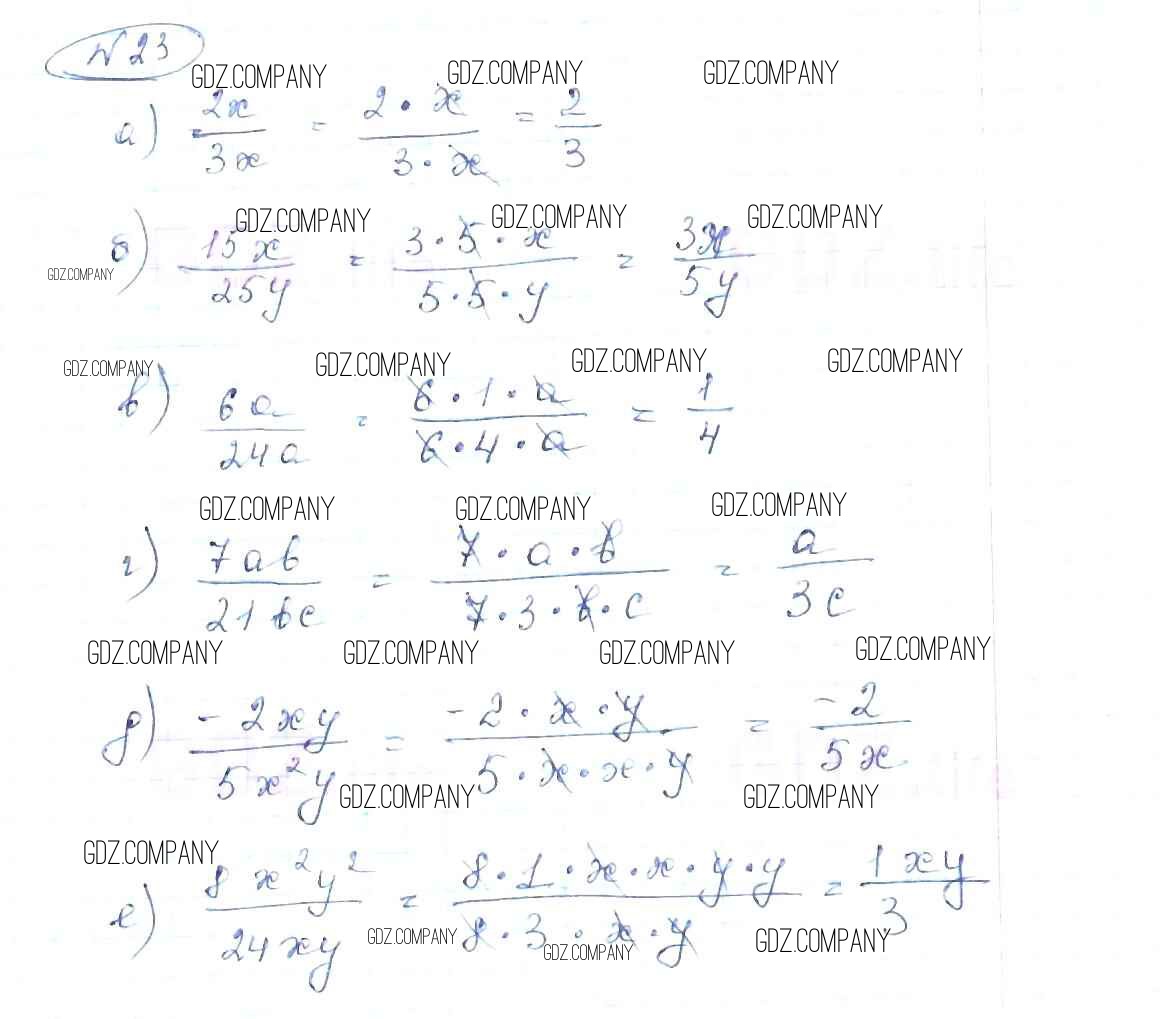 N 23
GDZ.COMPANY GDZ.COMPANY GDZ.COMPANY
а) 2x/3x = 2·x/3·x = 2/3
GDZ.COMPANY GDZ.COMPANY GDZ.COMPANY
б) 15x/25y = 3·5·x/5·5·y = 3x/5y
GDZ.COMPANY
GDZ.COMPANY GDZ.COMPANY GDZ.COMPANY GDZ.COMPANY
в) 6a/24a = 6·1·a/6·4·a = 1/4
GDZ.COMPANY GDZ.COMPANY GDZ.COMPANY
г) 7ab/21bc = 7·a·b/7·3·b·c = a/3c
GDZ.COMPANY GDZ.COMPANY GDZ.COMPANY GDZ.COMPANY
д) -2xy/5x²y = -2·x·y/5·x·x·y = -2/5x
GDZ.COMPANY GDZ.COMPANY
GDZ.COMPANY
е) 8x²y²/24xy = 8·1·x·x·y·y/8·3·x·y = 1xy/3
GDZ.COMPANY GDZ.COMPANY GDZ.COMPANY